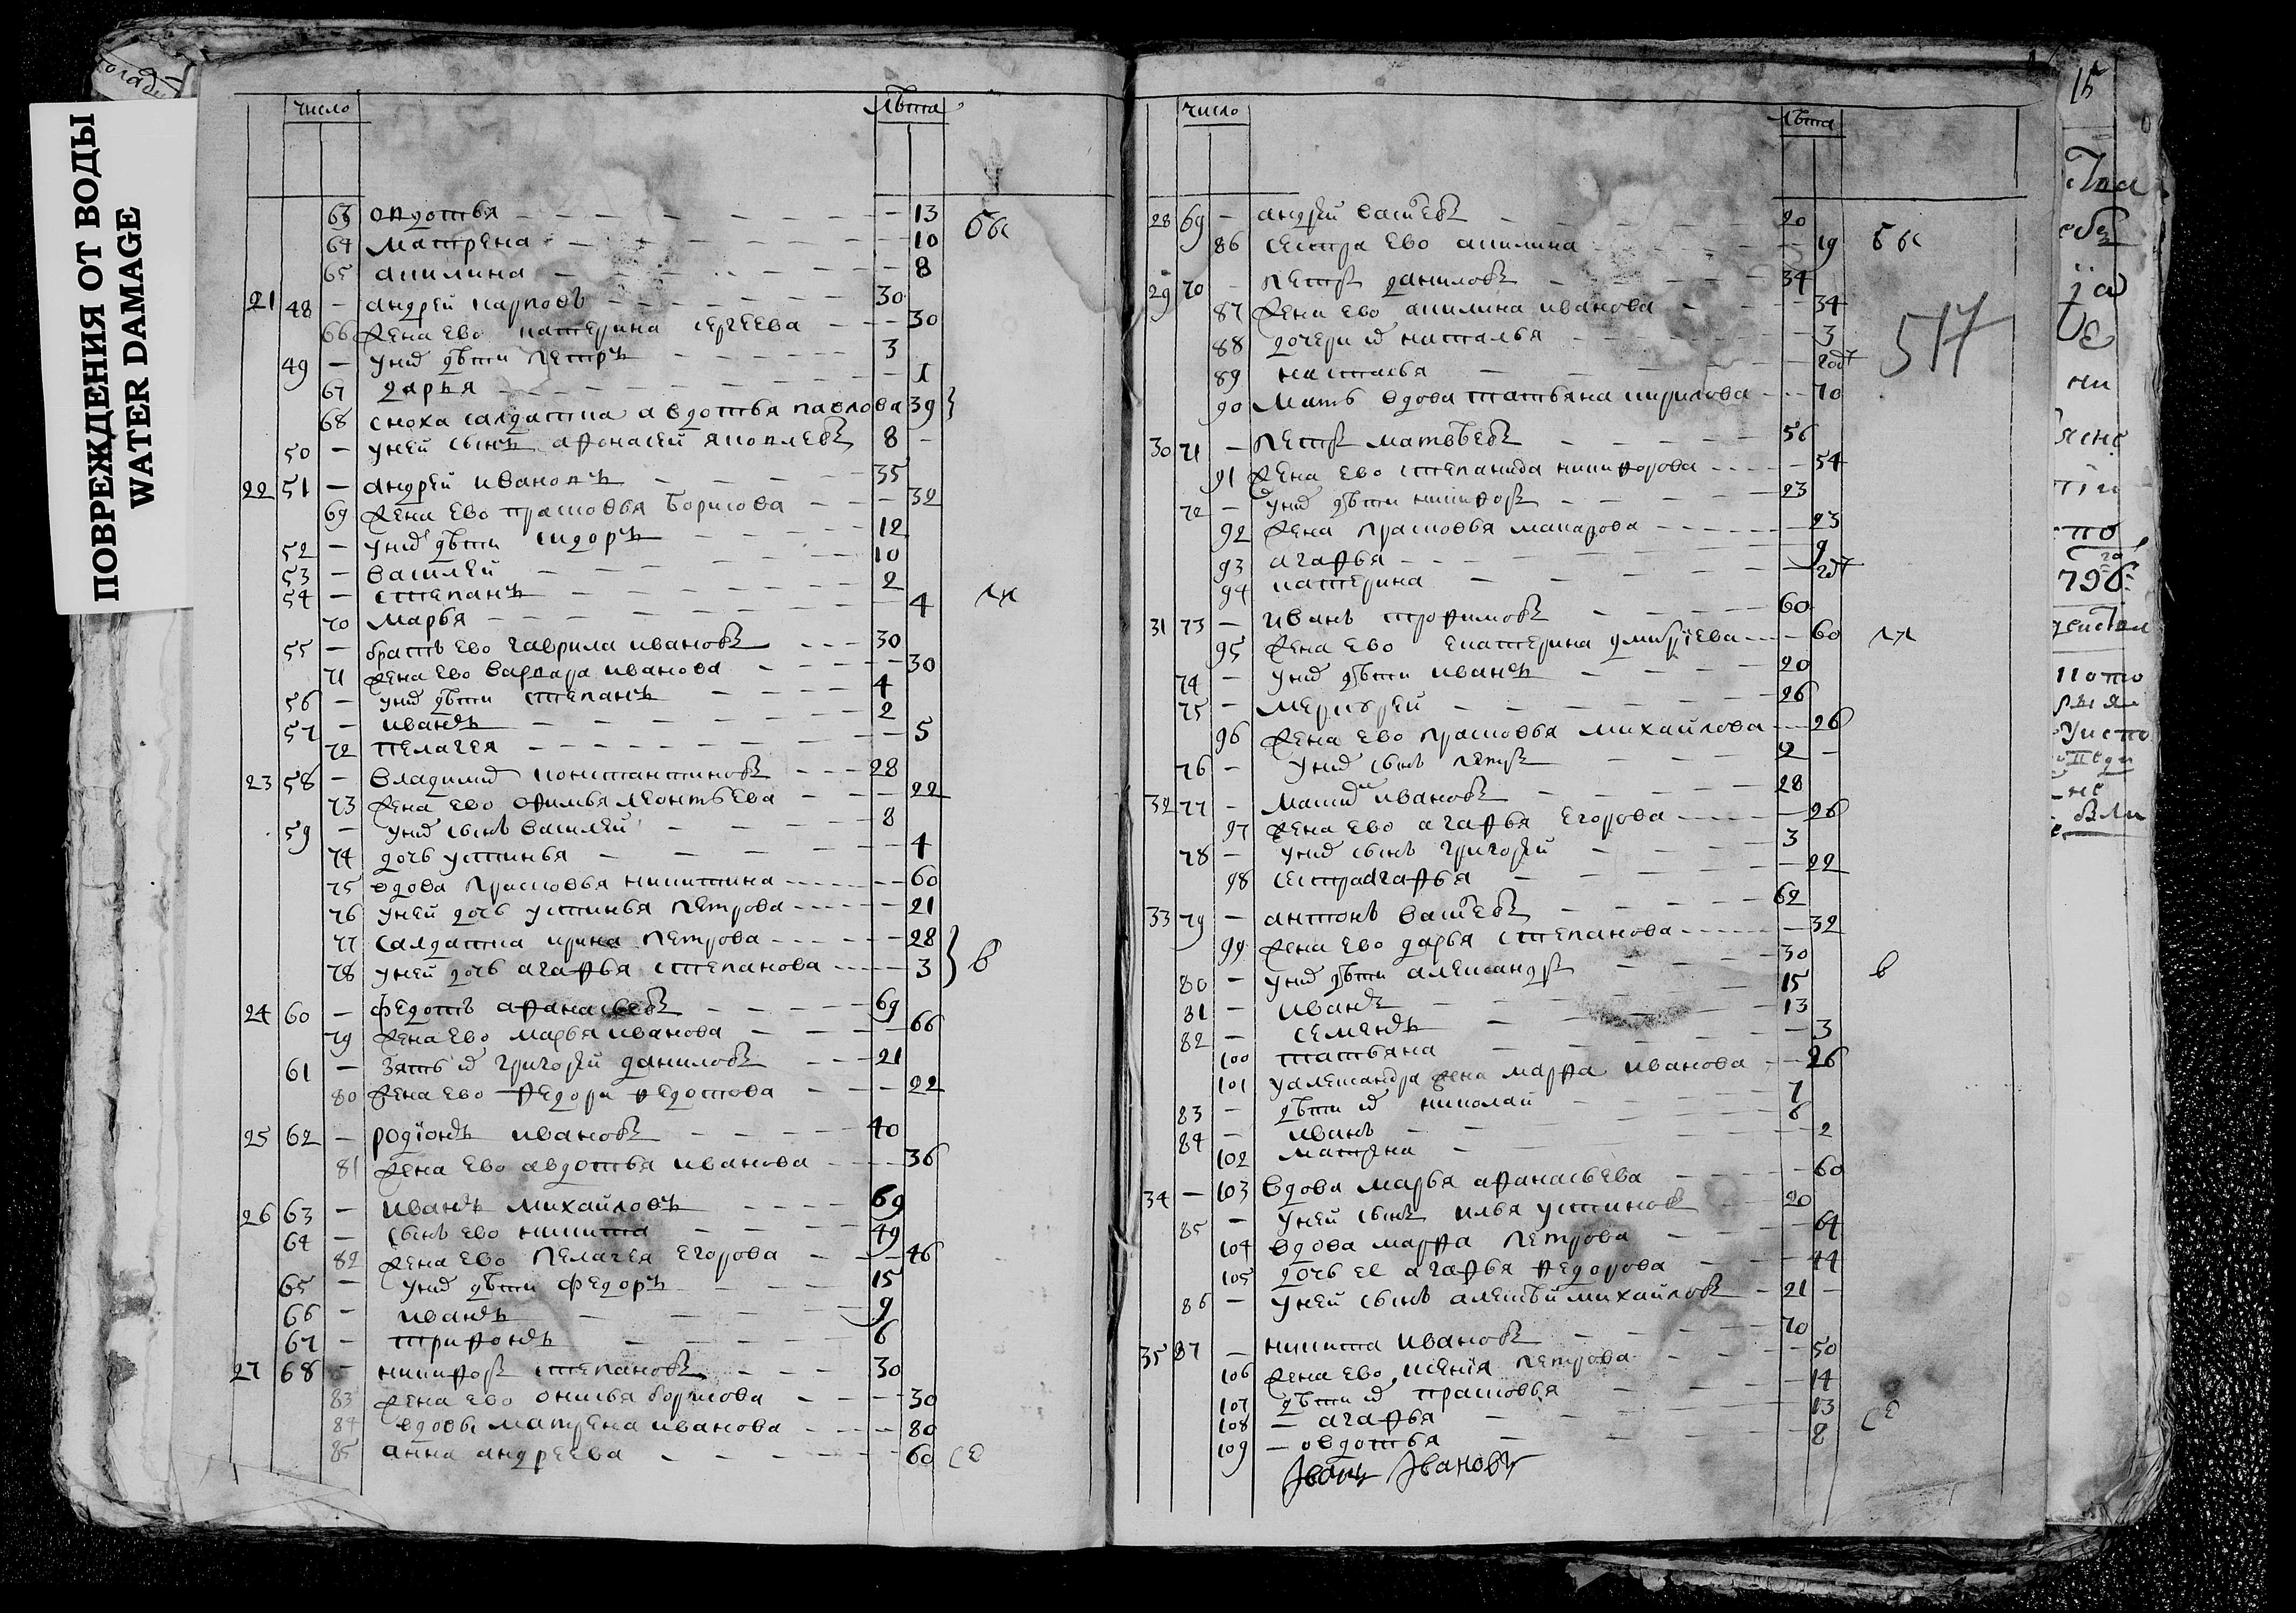 ПОВРЕЖДЕНИЯ ОТ ВОДЫ
WATER DAMAGE
число лѣта
63 овдотья 13
64 матрена 10
65 акилина 8
21 48 — андрей карповъ 30
66 жена ево катерина сергеева 30
49 — униⷯ дѣти петръ 3
67 дарья 1
68 сноха салдатка авдотья павлова 39
50 — уней сынъ афонасей яковлевъ 8 —
22 51 — андрей ивановъ 35
69 жена ево прасковья борисова 32
52 — униⷯ дѣти сидоръ 12
53 — василей 10
54 — степанъ 2
70 марья 4
55 — братъ ево гаврила ивановъ 30
71 жена ево варвара иванова 30
56 — униⷯ дѣти степанъ 4
57 — иванъ 2
72 пелагея 5
23 58 — владимиⷬ константиновъ 28
73 жена ево офимья леонтьева 22
59 — униⷯ сынъ василей 8
74 дочь устинья 4
75 вдова прасковья никитина 60
76 уней дочь устинья петрова 21
77 салдатка ирина петрова 28
78 уней дочь агафья степанова 3
24 60 — федотъ афанасьевъ 69
79 жена ево марья иванова 66
61 — зять иⷯ григорей даниловъ 21
80 жена ево федора федотова 22
25 62 — родїонъ ивановъ 40
81 жена ево авдотья иванова 36
26 63 — иванъ михайловъ 69
64 — сынъ ево никита 49
82 жена ево пелагея егорова 46
65 — униⷯ дѣти федоръ 15
66 — иванъ 9
67 — трифонъ 6
27 68 — никифоръ степановъ 30
83 жена ево онисья борисова 30
84 вдовы матрена иванова 80
85 анна андреева 60
число лѣта
28 69 — андрей васиⷧевъ 20
86 сестра ево акилина 19
29 70 — петръ даниловъ 34
87 жена ево акилина иванова 34
88 дочери иⷯ наталья 3
89 настасья годъ
90 мать вдова татьяна кирилова 70
517
30 71 — петръ матвѣевъ 56
91 жена ево степанида никифорова 54
72 — униⷯ дѣти никифоръ 23
92 жена прасковья макарова 23
93 агафья 9
94 катерина годъ
31 73 — иванъ трофимовъ 60
95 жена ево екатерина дмитрїева 60
74 — униⷯ дѣти иванъ 20
75 — меркурей 26
96 жена ево прасковья михайлова 26
76 — униⷯ сынъ петръ 2 —
32 77 — максиⷨ ивановъ 28
97 жена ево агафья егорова 26
78 — униⷯ сынъ григорей 3
98 сестра агафья 22
33 79 — антонъ васиⷧевъ 62
99 жена ево дарья степанова 32
80 — униⷯ дѣти александръ 30
81 — иванъ 15
82 — семенъ 13
100 татьяна 3
101 уалександра жена марфа иванова 26
83 — дѣти иⷯ николай 7
84 — иванъ 6
102 матрена 2
34 — 103 вдова марья афанасьева 60
85 — уней сынъ илья устиновъ 20
104 вдова марфа петрова 64
105 дочь ее агафья федорова 44
86 — уней сынъ алексѣй михайловъ 21 —
35 87 — никита ивановъ 70
106 жена ево ксенїя петрова 50
107 дѣти иⷯ прасковья 14
108 — агафья 13
109 — овдотья 8
Іванъ Івановъ